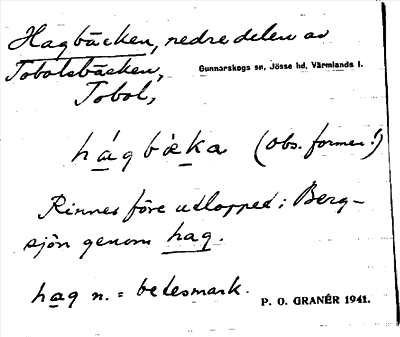 Hagbäcken, nedre delen av
Tobolsbäcken,
Gunnarskogs sn, Jösse hd, Värmlands l.
Tobol,
hágbὲka (obs. formen!)
Rinner före utloppet i Berg-
sjön genom hag.
hag n. = betesmark.
P. O. GRANÉR 1941.